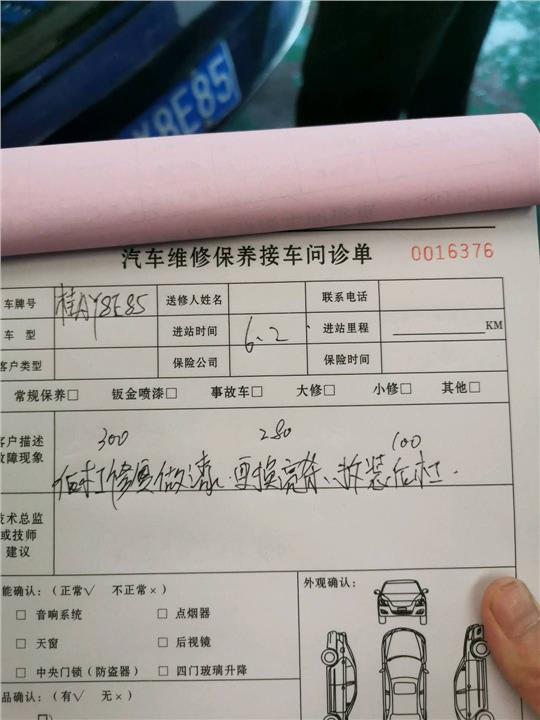 Y8E85
汽车维修保养接车问诊单 0016376
车牌号 桂AY8E85 送修人姓名 联系电话
车 型 进站时间 6.2 进站里程 KM
客户类型 保险公司 保险时间
常规保养□ 钣金喷漆□ 事故车□ 大修□ 小修□ 其他□
300 280 100
客户描述
故障现象
后杠修复做漆.更换亮条、拆装后杠.
技术总监
或技师
建议
能确认：（正常√ 不正常×） 外观确认：
□ 音响系统 □ 点烟器
□ 天窗 □ 后视镜
□ 中央门锁（防盗器） □ 四门玻璃升降
品确认：（有√ 无×）